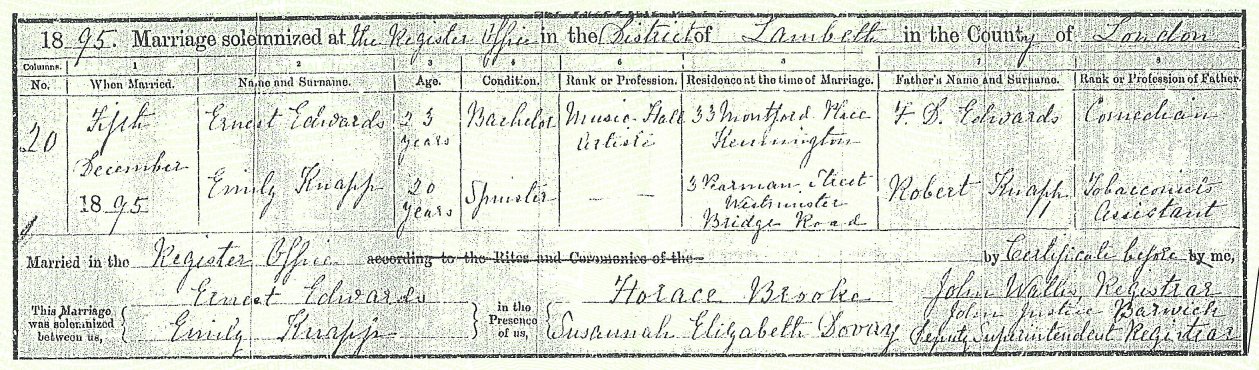 1895. Marriage solemnized at the Register Office in the District of Lambeth in the County of London
Columns. 1 2 3 4 5 6 7 8
No. When Married. Name and Surname. Age. Condition. Rank or Profession. Residence at the time of Marriage. Father's Name and Surname. Rank or Profession of Father.
20 Fifth Ernest Edwards 23 Bachelor Music Hall 33 Montford Place F. D. Edwards Comedian
years Artiste Kennington
December Emily Knapp 20 Spinster — — 3 Pearman Street Robert Knapp Tobacconist's
1895 years Westminster Assistant
Bridge Road
Married in the Register Office according to the Rites and Ceremonies of the by Certificate before by me,
This Marriage was solemnized between us, Ernest Edwards in the Presence of us, Horace Brooke John Wallis, Registrar
Emily Knapp Susannah Elizabeth John Justice Barwich
Deputy Superintendent Registrar